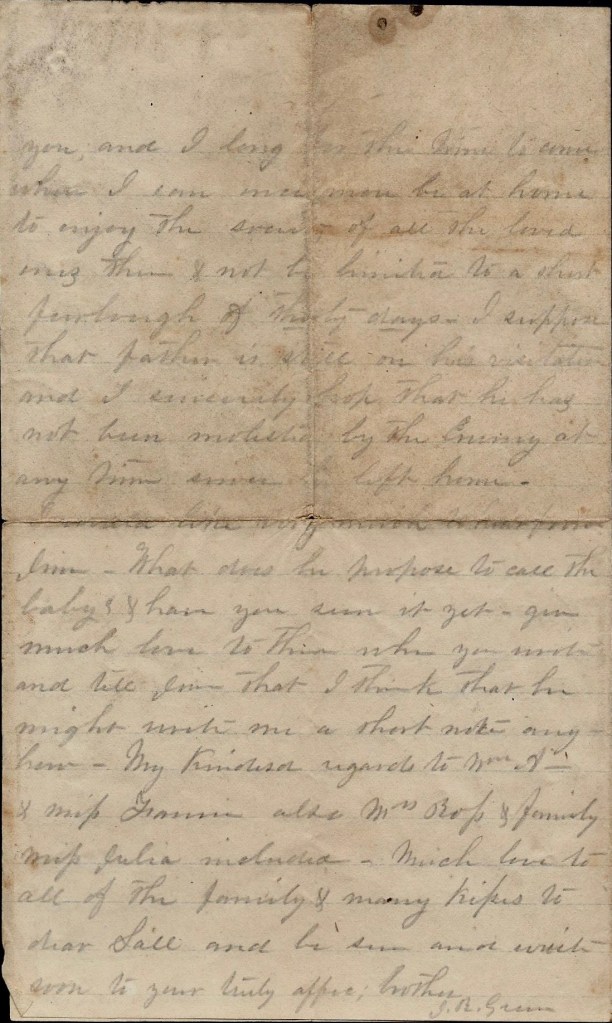 you, and I long for the time to come
when I can once more be at home
to enjoy the society of all the loved
ones there & not be limited to a short
furlough of thirty days - I suppose
that father is still on his visitation
and I sincerely hope that he has
not been molested by the Enemy at
any time since he left home -
I would like very much to hear from
Jim - What does he propose to call the
baby & have you seen it yet - give
much love to them when you write
and tell Jim that I think that he
might write me a short note any-
how - My Kindest regards to
& miss Fannie also Mrs Ross & family
miss Julia included - Much love to
all of the family & many kisses to
dear Sall and be sure and write
soon to your truly affec; brother
J. R. Green